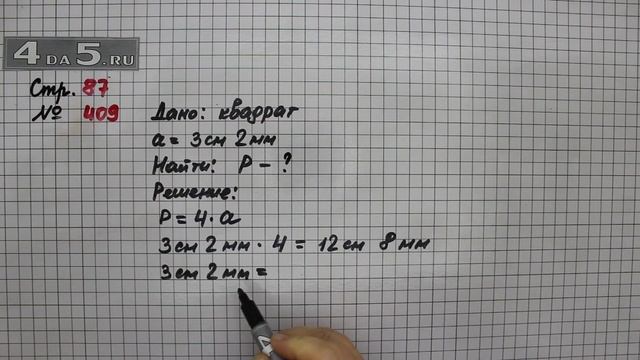 4 DA 5.RU
Стр. 87
№ 409
Дано: квадрат
a = 3 см 2 мм
Найти: P - ?
Решение:
P = 4 · a
3 см 2 мм · 4 = 12 см 8 мм
3 см 2 мм =